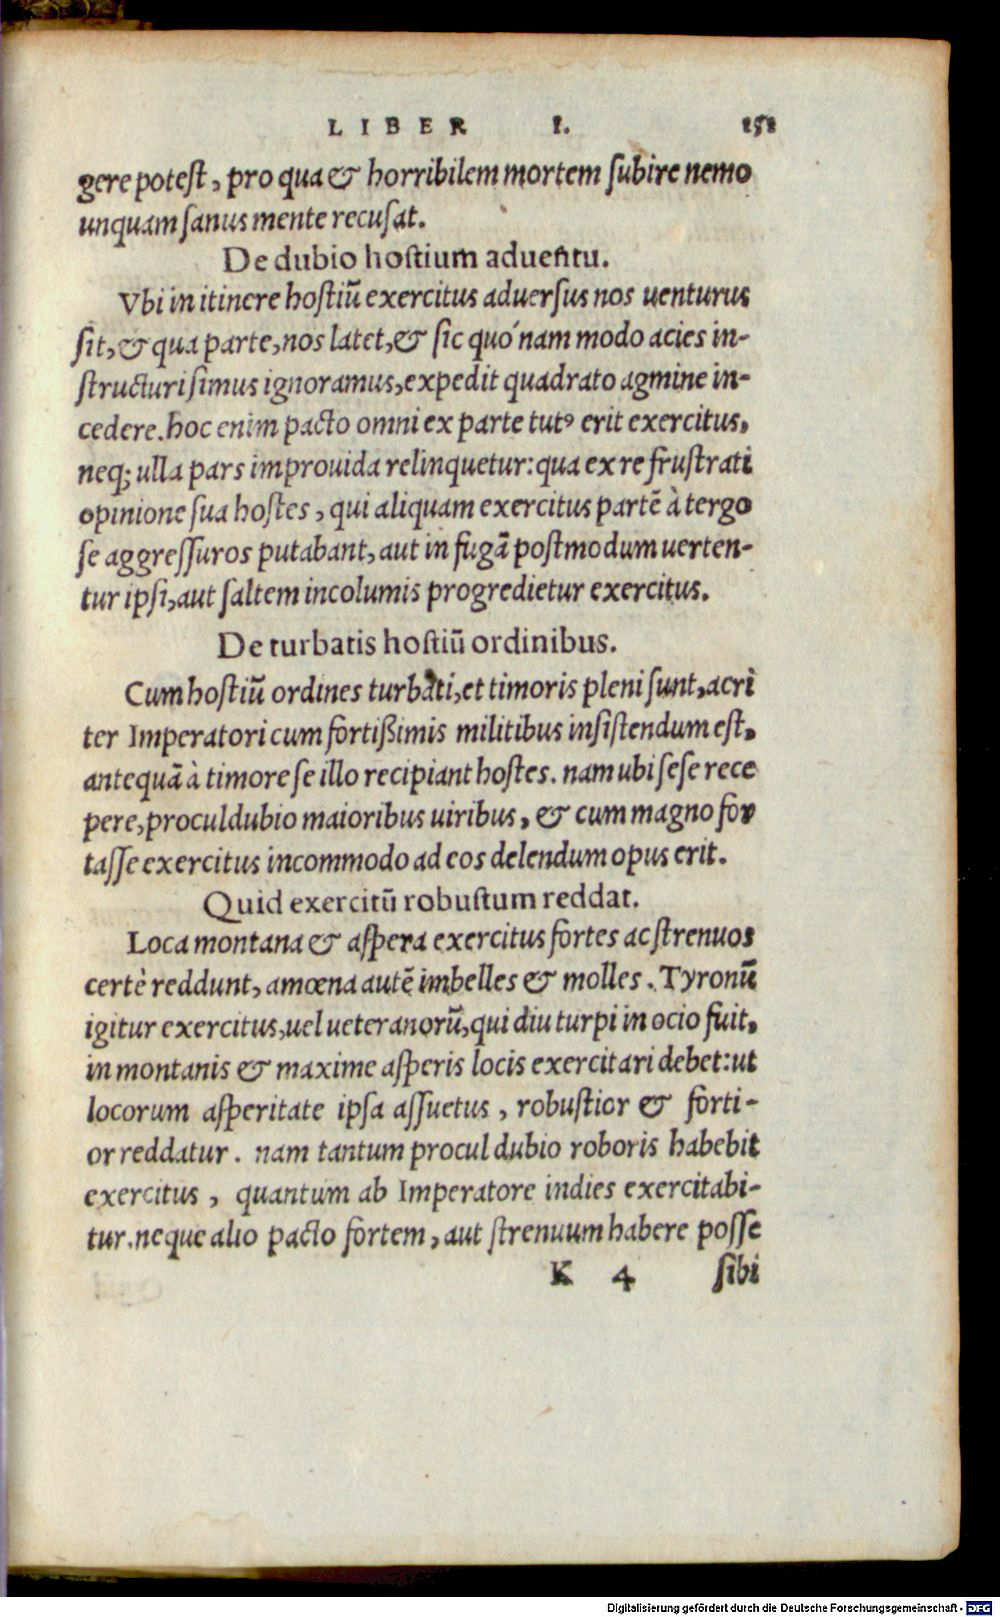 LIBER I. 151
gere potest, pro qua & horribilem mortem subire nemo
unquam sanus mente recusat.
De dubio hostium aduentu.
Vbi in itinere hostiũ exercitus aduersus nos uenturus
sit, & qua parte, nos latet, & sic quó nam modo acies in-
structuri simus ignoramus, expedit quadrato agmine in-
cedere. hoc enim pacto omni ex parte tutꝰ erit exercitus,
neq; ulla pars improuida relinquetur: qua ex re frustrati
opinione sua hostes, qui aliquam exercitus partẽ à tergo
se aggressuros putabant, aut in fugã postmodum uerten-
tur ipsi, aut saltem incolumis progredietur exercitus.
De turbatis hostiũ ordinibus.
Cum hostiũ ordines turbati, et timoris pleni sunt, acri
ter Imperatori cum fortißimis militibus insistendum est,
antequã à timore se illo recipiant hostes. nam ubi sese rece
pere, procul dubio maioribus uiribus, & cum magno for
tasse exercitus incommodo ad eos delendum opus erit.
Quid exercitũ robustum reddat.
Loca montana & aspera exercitus fortes ac strenuos
certè reddunt, amœna autẽ imbelles & molles. Tyronũ
igitur exercitus, uel ueteranorũ, qui diu turpi in ocio fuit,
in montanis & maxime asperis locis exercitari debet: ut
locorum asperitate ipsa assuetus, robustior & forti-
or reddatur. nam tantum procul dubio roboris habebit
exercitus, quantum ab Imperatore indies exercitabi-
tur. neque alio pacto fortem, aut strenuum habere posse
K 4 sibi
Digitalisierung gefördert durch die Deutsche Forschungsgemeinschaft - DFG